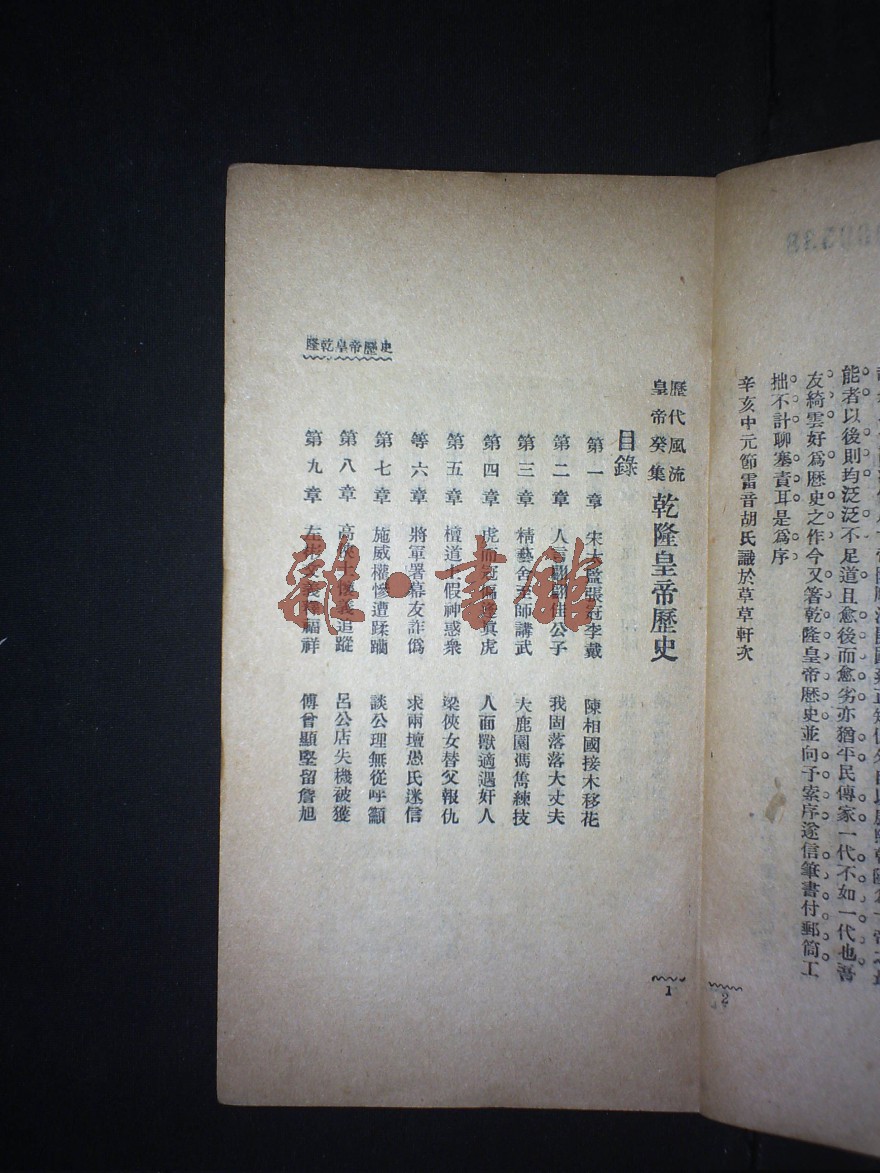 能者以後則均泛泛不足道且愈後而愈劣亦猶平民傳家一代不如一代也吾
友綺雲好爲歷史之作今又箸乾隆皇帝歷史並向予索序遂信筆書付郵筒工
拙不計聊塞責耳是爲序
辛亥中元節雷音胡氏識於草草軒次
2
歷代風流
皇帝癸集
乾隆皇帝歷史
目錄
第一章 宋太監張冠李戴 陳相國接木移花
第二章 人言翩翩佳公子 我固落落大丈夫
第三章 精藝舍至師講武 大鹿園馮雋練技
第四章 虎而冠 眞虎 人面獸適遇奸人
第五章 檀道士假神惑衆 梁俠女替父報仇
等六章 將軍署幕友詐僞 求兩壇愚氏迷信
第七章 施威權慘遭蹂躪 談公理無從呼籲
第八章 高俠士仗義追蹤 呂公店失機被獲
第九章 左 文義釋福祥 傅曾顯堅留詹旭
隆乾皇帝歷史
1
龍•書館